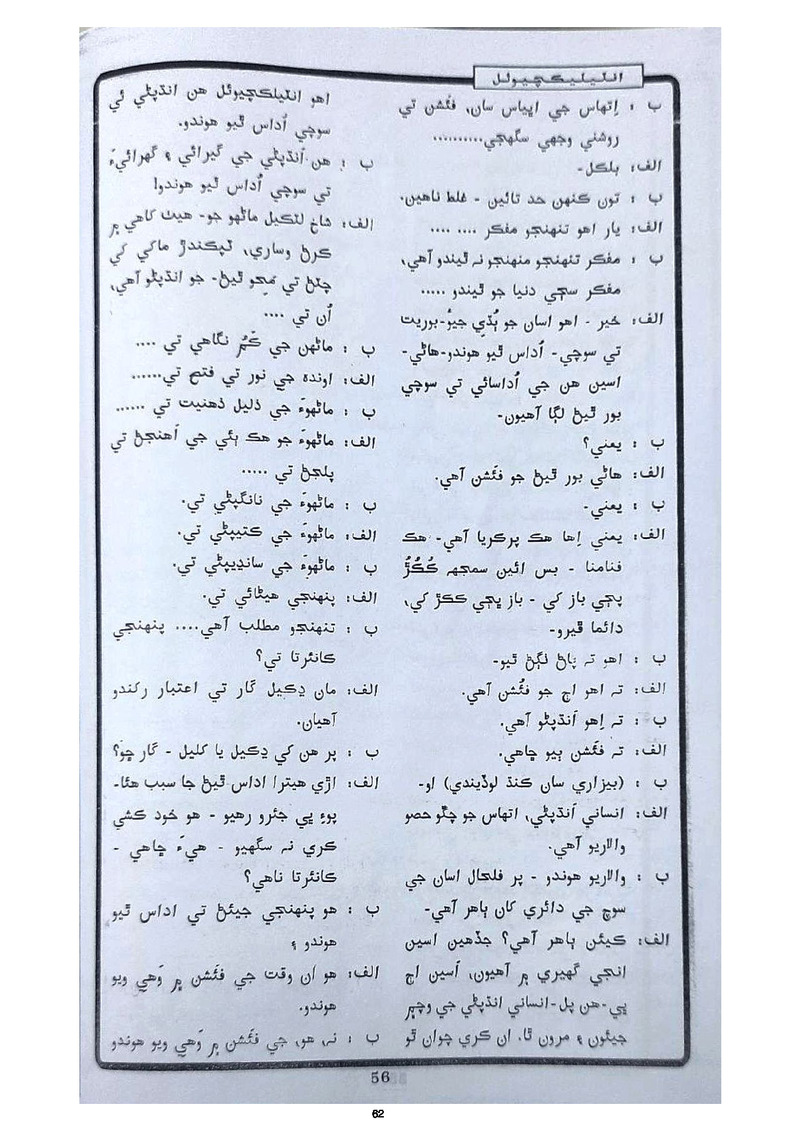 انٽيليڪچيوئل
ب : اِتهاس جي اڀياس سان، فئشن تي
روشني وجهي سگهجي..........
الف: بلڪل-
ب : تون ڪنهن حد تائين - غلط ناهين.
الف: يار اهو تنهنجو مفڪر .... ....
ب : مفڪر تنهنجو منهنجو نہ ٿيندو آهي،
مفڪر سڄي دنيا جو ٿيندو .....
الف: خير - اهو اسان جو ٻُڌي جيوُ-بوريت
تي سوچي- اُداس ٿيو هوندو-هاڻي-
اسين هن جي اُداسائي تي سوچي
بور ٿيڻ لڳا آهيون-
ب : يعني؟
الف: هاڻي بور ٿيڻ جو فئشن آهي.
ب : يعني-
الف: يعني اِها هڪ پرڪريا آهي- هڪ
فنامنا - بس ائين سمجهہ ڪُڪُڙُ
پڇي باز کي - باز ڀڄي ڪڪڙ کي،
دائما ڦيرو-
ب : اهو تہ پاڻ لڳڻ ٿيو-
الف: تہ اهو اڄ جو فئشن آهي.
ب : تہ اِهو اَنڌپڻو آهي.
الف: تہ فئشن ٻيو ڇاهي.
ب : (بيزاري سان ڪنڌ لوڏيندي) او-
الف: انساني اَنڌپڻي، اتهاس جو چڱو حصو
والاريو آهي.
ب : والاريو هوندو - پر فلحال اسان جي
سوچ جي دائري کان ٻاهر آهي-
الف: ڪيئن ٻاهر آهي؟ جڏهين اسين
انجي گهيري ۾ آهيون، اَسين اڄ
ڀي-هن پل-انساني انڌپڻي جي وچ۾
جيئون ۽ مرون ٿا، ان ڪري چوان ٿو
اهو انٽيلڪچيوئل هن انڌپڻي ئي
سوچي اُداس ٿيو هوندو.
ب : هن اَنڌپڻي جي گيرائي ۽ گهرائيءَ
تي سوچي اُداس ٿيو هوندو!
الف: شاخ لٽڪيل ماڻهو جو- هيٺ کاهي ۾
ڪرڻ وساري، ٽپڪندڙ ماکي کي
چٽڻ تي مَحو ٿيڻ- جو انڌپڻو آهي،
اُن تي ....
ب : ماڻهن جي ڪَمُ نگاهي تي ....
الف: اونده جي نور تي فتح تي......
ب : ماڻهوءَ جي ذليل ذهنيت تي ......
الف: ماڻهوءَ جو هڪ ٻئي جي اَهنجن تي
پلجڻ تي .....
ب : ماڻهوءَ جي نانگپڻي تي.
الف: ماڻهوءَ جي ڪتيپڻي تي.
ب : ماڻهوءَ جي سانڍيپڻي تي.
الف: پنهنجي هيڻائي تي.
ب : تنهنجو مطلب آهي.... پنهنجي
ڪائرتا تي؟
الف: مان ڍڪيل گار تي اعتبار رکندو
آهيان.
ب : پر هن کي ڍڪيل يا کليل - گار ڇوَ؟
الف: اڙي هيترا اداس ٿيڻ جا سبب هئا-
پوءِ ڀي جئرو رهيو - هو خود ڪشي
ڪري نہ سگهيو - هيءَ ڇاهي -
ڪائرتا ناهي؟
ب : هو پنهنجي جيئڻ تي اداس ٿيو
هوندو ۽
الف: هو ان وقت جي فئشن ۾ وَهي ويو
هوندو.
ب : نہ، هو، جي فئشن ۾ وَهي ويو هوندو
56
62